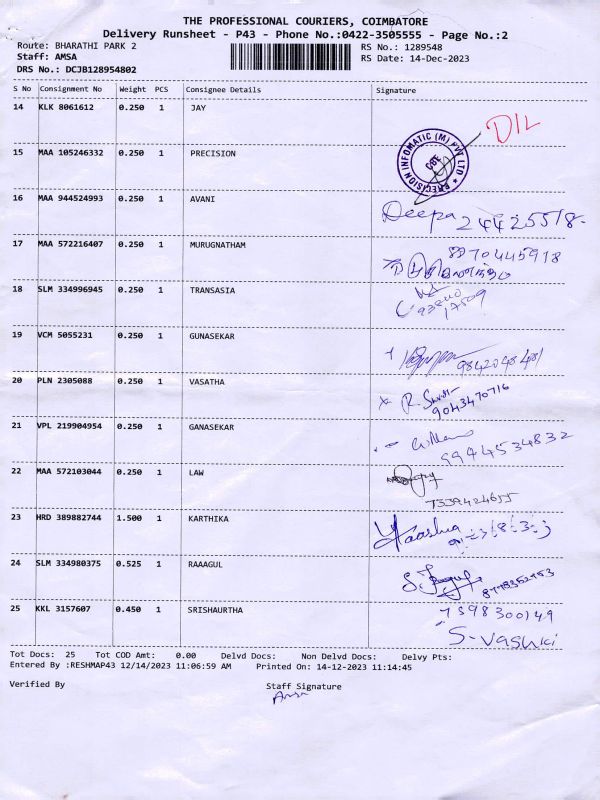 THE PROFESSIONAL COURIERS, COIMBATORE
Delivery Runsheet - P43 - Phone No.:0422-3505555 - Page No.:2
Route: BHARATHI PARK 2 RS No.: 1289548
Staff: AMSA RS Date: 14-Dec-2023
DRS No.: DCJB128954802
S No Consignment No Weight PCS Consignee Details Signature
14 KLK 8061612 0.250 1 JAY
D/L
15 MAA 105246332 0.250 1 PRECISION
PRECISION INFOMATIC (M) PVT LTD ★ CBE
16 MAA 944524993 0.250 1 AVANI
Deepa 24425518-
17 MAA 572216407 0.250 1 MURUGNATHAM
8870445918
18 SLM 334996945 0.250 1 TRANSASIA
19 VCM 5055231 0.250 1 GUNASEKAR
20 PLN 2305088 0.250 1 VASATHA
9043470716
21 VPL 219904954 0.250 1 GANASEKAR
9994534832
22 MAA 572103044 0.250 1 LAW
7339424655
23 HRD 389882744 1.500 1 KARTHIKA
24 SLM 334980375 0.525 1 RAAAGUL
25 KKL 3157607 0.450 1 SRISHAURTHA
7598300149
S-vasuki
Tot Docs: 25 Tot COD Amt: 0.00 Delvd Docs: Non Delvd Docs: Delvy Pts:
Entered By :RESHMAP43 12/14/2023 11:06:59 AM Printed On: 14-12-2023 11:14:45
Verified By Staff Signature
Amsa